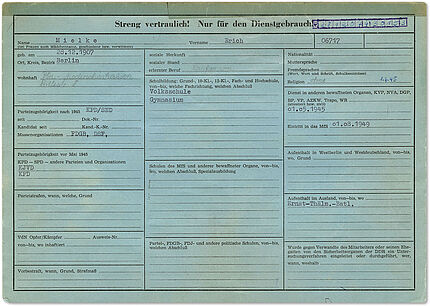 Streng vertraulich! Nur für den Dienstgebrauch
Name Mielke Vorname Erich 06717
(bei Frauen auch Mädchenname, geschiedene bzw. verwitwete)
geb. am 28.12.1907
Ort, Kreis, Bezirk Berlin
wohnhaft
soziale Herkunft
sozialer Stand
erlernter Beruf
Nationalität
Muttersprache
Fremdsprachen
(Wort und Schrift, Schulkenntnisse)
Religion
Schulbildung: Grund-, 10-Kl.-, Fach- und Hochschule,
von–bis, welche Fachrichtung, welchen Abschluß
Volksschule
Gymnasium
Dienst in anderen bewaffneten Organen, KVP, NVA, DGP,
BP, VP, AZKW, Trapo, WR
(von–bis, wo)
01.05.1945
Eintritt in das MfS 01.08.1949
Parteizugehörigkeit nach 1945 KPD/SED
seit Dok.-Nr.
Kandidat seit Kand.-K.-Nr.
Massenorganisationen FDGB, DSF,
Parteizugehörigkeit vor Mai 1945
KPD – SPD – andere Parteien und Organisationen
KJVD
KPD
Schulen des MfS und anderer bewaffneter Organe, von–bis,
wo, welchen Abschluß, Spezialausbildung
Aufenthalt in Westberlin und Westdeutschland, von–bis,
wo, Grund
Parteistrafen, wann, welche, Grund
Aufenthalt im Ausland, von–bis, wo
Ernst-Thälm.-Batl.
VdN Opfer/Kämpfer Ausweis-Nr.
von–bis, wo inhaftiert
Partei-, FDGB-, FDJ- und andere politische Schulen, von–bis,
wo, welchen Abschluß
Wurde gegen Verwandte des Mitarbeiters oder seinen Ehe-
gatten von den Sicherheitsorganen der DDR ein Unter-
suchungsverfahren eingeleitet oder durchgeführt, wer,
wann, weshalb
Vorbestraft, wann, Grund, Strafmaß